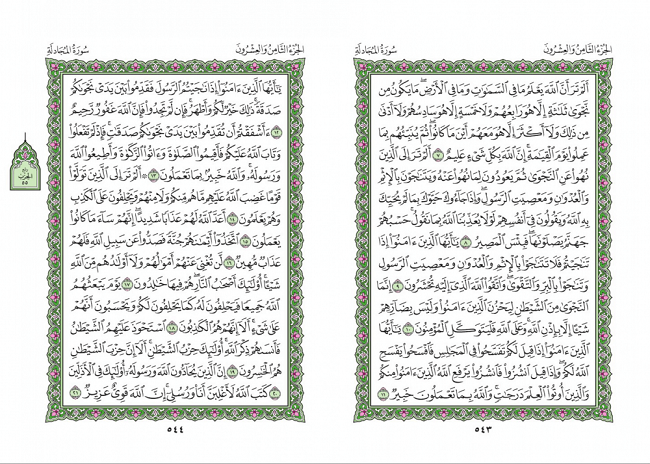 الجزء الثامن والعشرون
سورة المجادلة
ألم تر أن الله يعلم ما في السموت وما في الأرض ما يكون من
نجوى ثلثة إلا هو رابعهم ولا خمسة إلا هو سادسهم ولا أدنى
من ذلك ولا أكثر إلا هو معهم أين ما كانوا ثم ينبئهم بما
عملوا يوم القيمة إن الله بكل شيء عليم ٧ ألم تر إلى الذين
نهوا عن النجوى ثم يعودون لما نهوا عنه ويتنجون بالإثم
والعدون ومعصيت الرسول وإذا جاءوك حيوك بما لم يحيك
به الله ويقولون في أنفسهم لولا يعذبنا الله بما نقول حسبهم
جهنم يصلونها فبئس المصير ٨ يأيها الذين ءامنوا إذا
تنجيتم فلا تتنجوا بالإثم والعدون ومعصيت الرسول
وتنجوا بالبر والتقوى واتقوا الله الذي إليه تحشرون ٩ إنما
النجوى من الشيطن ليحزن الذين ءامنوا وليس بضارهم
شيئا إلا بإذن الله وعلى الله فليتوكل المؤمنون ١٠ يأيها
الذين ءامنوا إذا قيل لكم تفسحوا في المجلس فافسحوا يفسح
الله لكم وإذا قيل انشزوا فانشزوا يرفع الله الذين ءامنوا منكم
والذين أوتوا العلم درجت والله بما تعملون خبير ١١
٥٤٣
الجزء الثامن والعشرون
سورة المجادلة
يأيها الذين ءامنوا إذا نجيتم الرسول فقدموا بين يدي نجوىكم
صدقة ذلك خير لكم وأطهر فإن لم تجدوا فإن الله غفور رحيم
١٢ ءأشفقتم أن تقدموا بين يدي نجوىكم صدقت فإذ لم تفعلوا
وتاب الله عليكم فأقيموا الصلوة وءاتوا الزكوة وأطيعوا الله
ورسوله والله خبير بما تعملون ١٣ ألم تر إلى الذين تولوا
قوما غضب الله عليهم ما هم منكم ولا منهم ويحلفون على الكذب
وهم يعلمون ١٤ أعد الله لهم عذابا شديدا إنهم ساء ما كانوا
يعملون ١٥ اتخذوا أيمنهم جنة فصدوا عن سبيل الله فلهم
عذاب مهين ١٦ لن تغني عنهم أمولهم ولا أولدهم من الله
شيئا أولئك أصحب النار هم فيها خلدون ١٧ يوم يبعثهم
الله جميعا فيحلفون له كما يحلفون لكم ويحسبون أنهم
على شيء ألا إنهم هم الكذبون ١٨ استحوذ عليهم الشيطن
فأنسىهم ذكر الله أولئك حزب الشيطن ألا إن حزب الشيطن
هم الخسرون ١٩ إن الذين يحادون الله ورسوله أولئك في الأذلين
٢٠ كتب الله لأغلبن أنا ورسلي إن الله قوي عزيز ٢١
٥٤٤
الحزب
٥٥